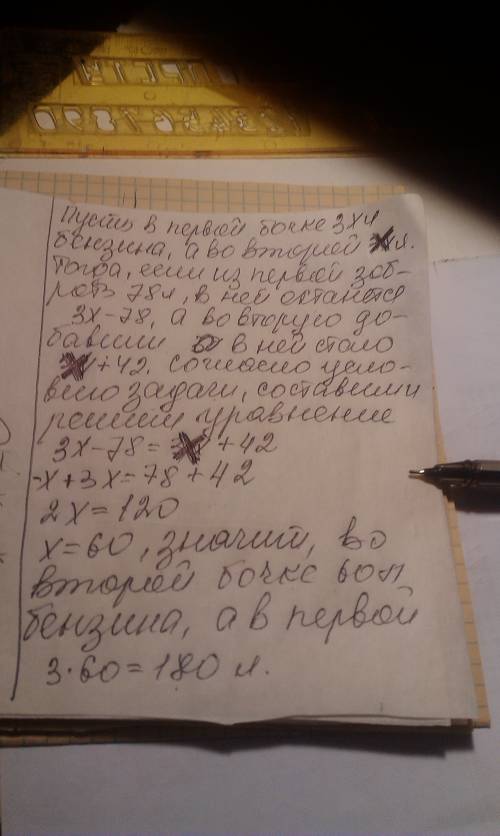 Пусть в первой бочке 3х л
бензина, а во второй х л.
Тогда, если из первой заб-
рать 78 л, в ней останется
3х-78, а во вторую до-
бавили в ней стало
х+42. согласно усло-
вию задачи, составим и
решим уравнение
3х-78= х+42
-х+3х=78+42
2х=120
х=60, значит, во
второй бочке 60л
бензина, а в первой
3·60=180 л.